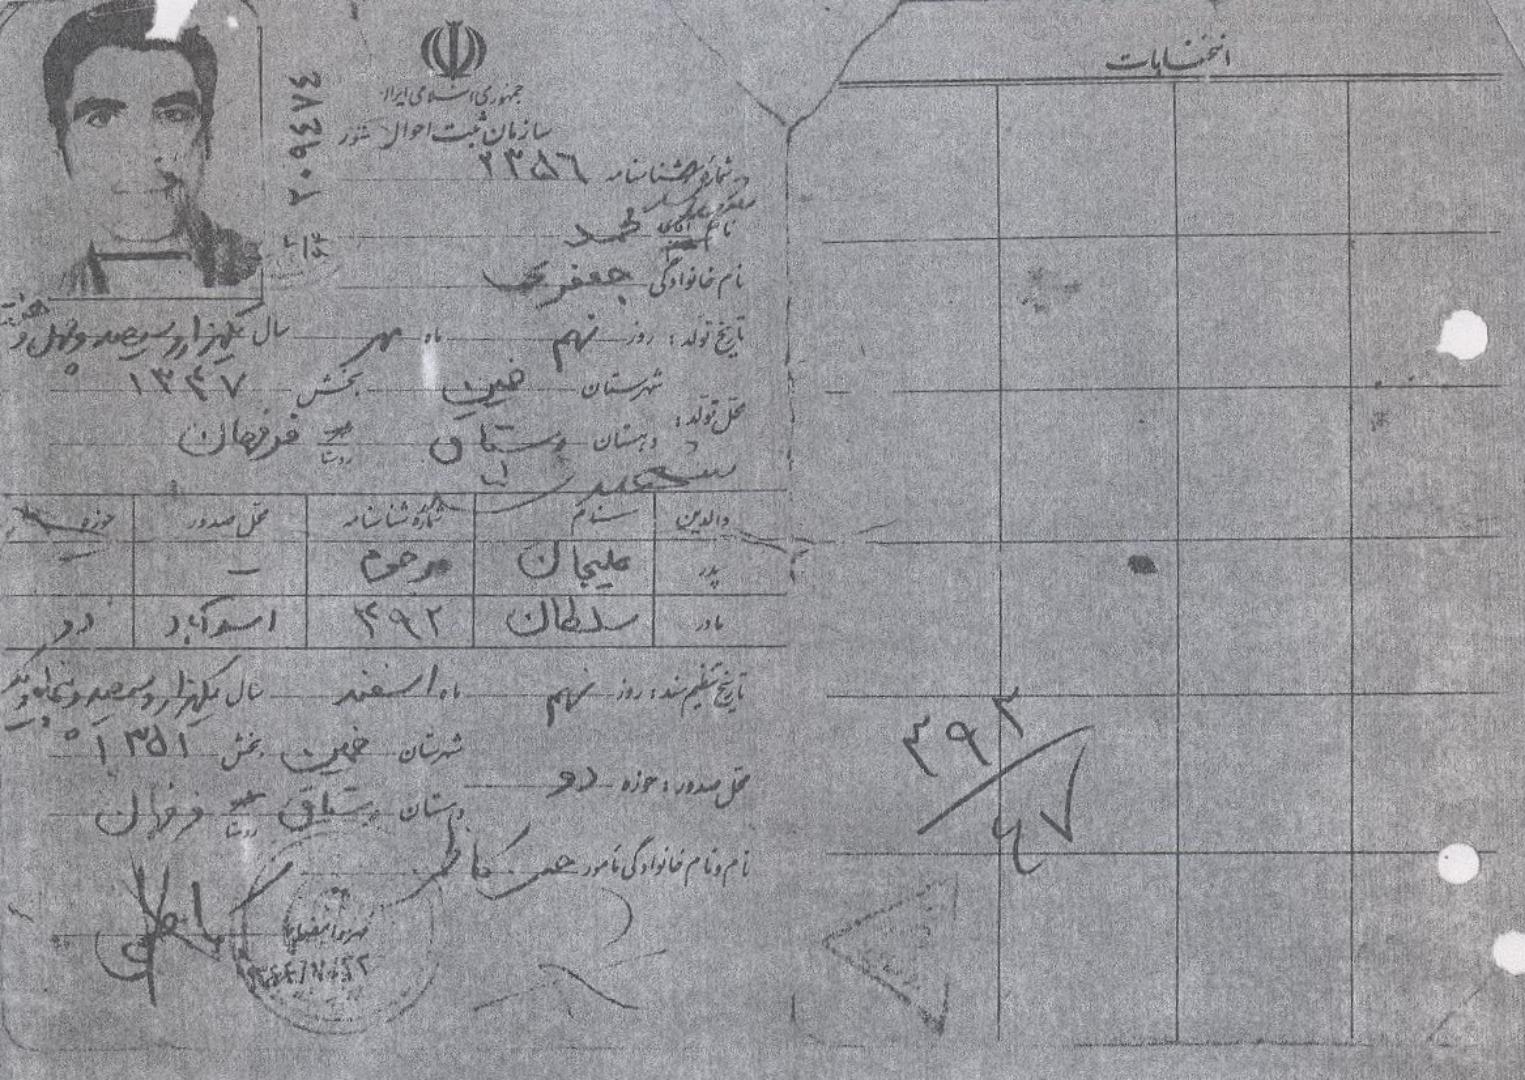 جمهوری اسلامی ایران
سازمان ثبت احوال کشور
۲۰۹۴۷۴
شماره شناسنامه ۲۳۵۶
نام آقای محمد
نام خانوادگی جعفری
تاریخ تولد: روز نهم ماه مهر سال یکهزار و سیصد و چهل و هفت
محل تولد: شهرستان خمین بخش ۱۳۴۷
دهستان رستاق روستا فرفهان
والدین نام شماره شناسنامه محل صدور حوزه
پدر علیجان مرحوم – –
مادر سلطان ۴۹۲ اسدآباد دو
تاریخ تنظیم سند: روز نهم ماه اسفند سال یکهزار و سیصد و پنجاه و یک
محل صدور: حوزه دو شهرستان خمین بخش ۱۳۵۱
دهستان رستاق روستا فرفهان
نام و نام خانوادگی مامور
انتخابات
۳۹۲
۴۷